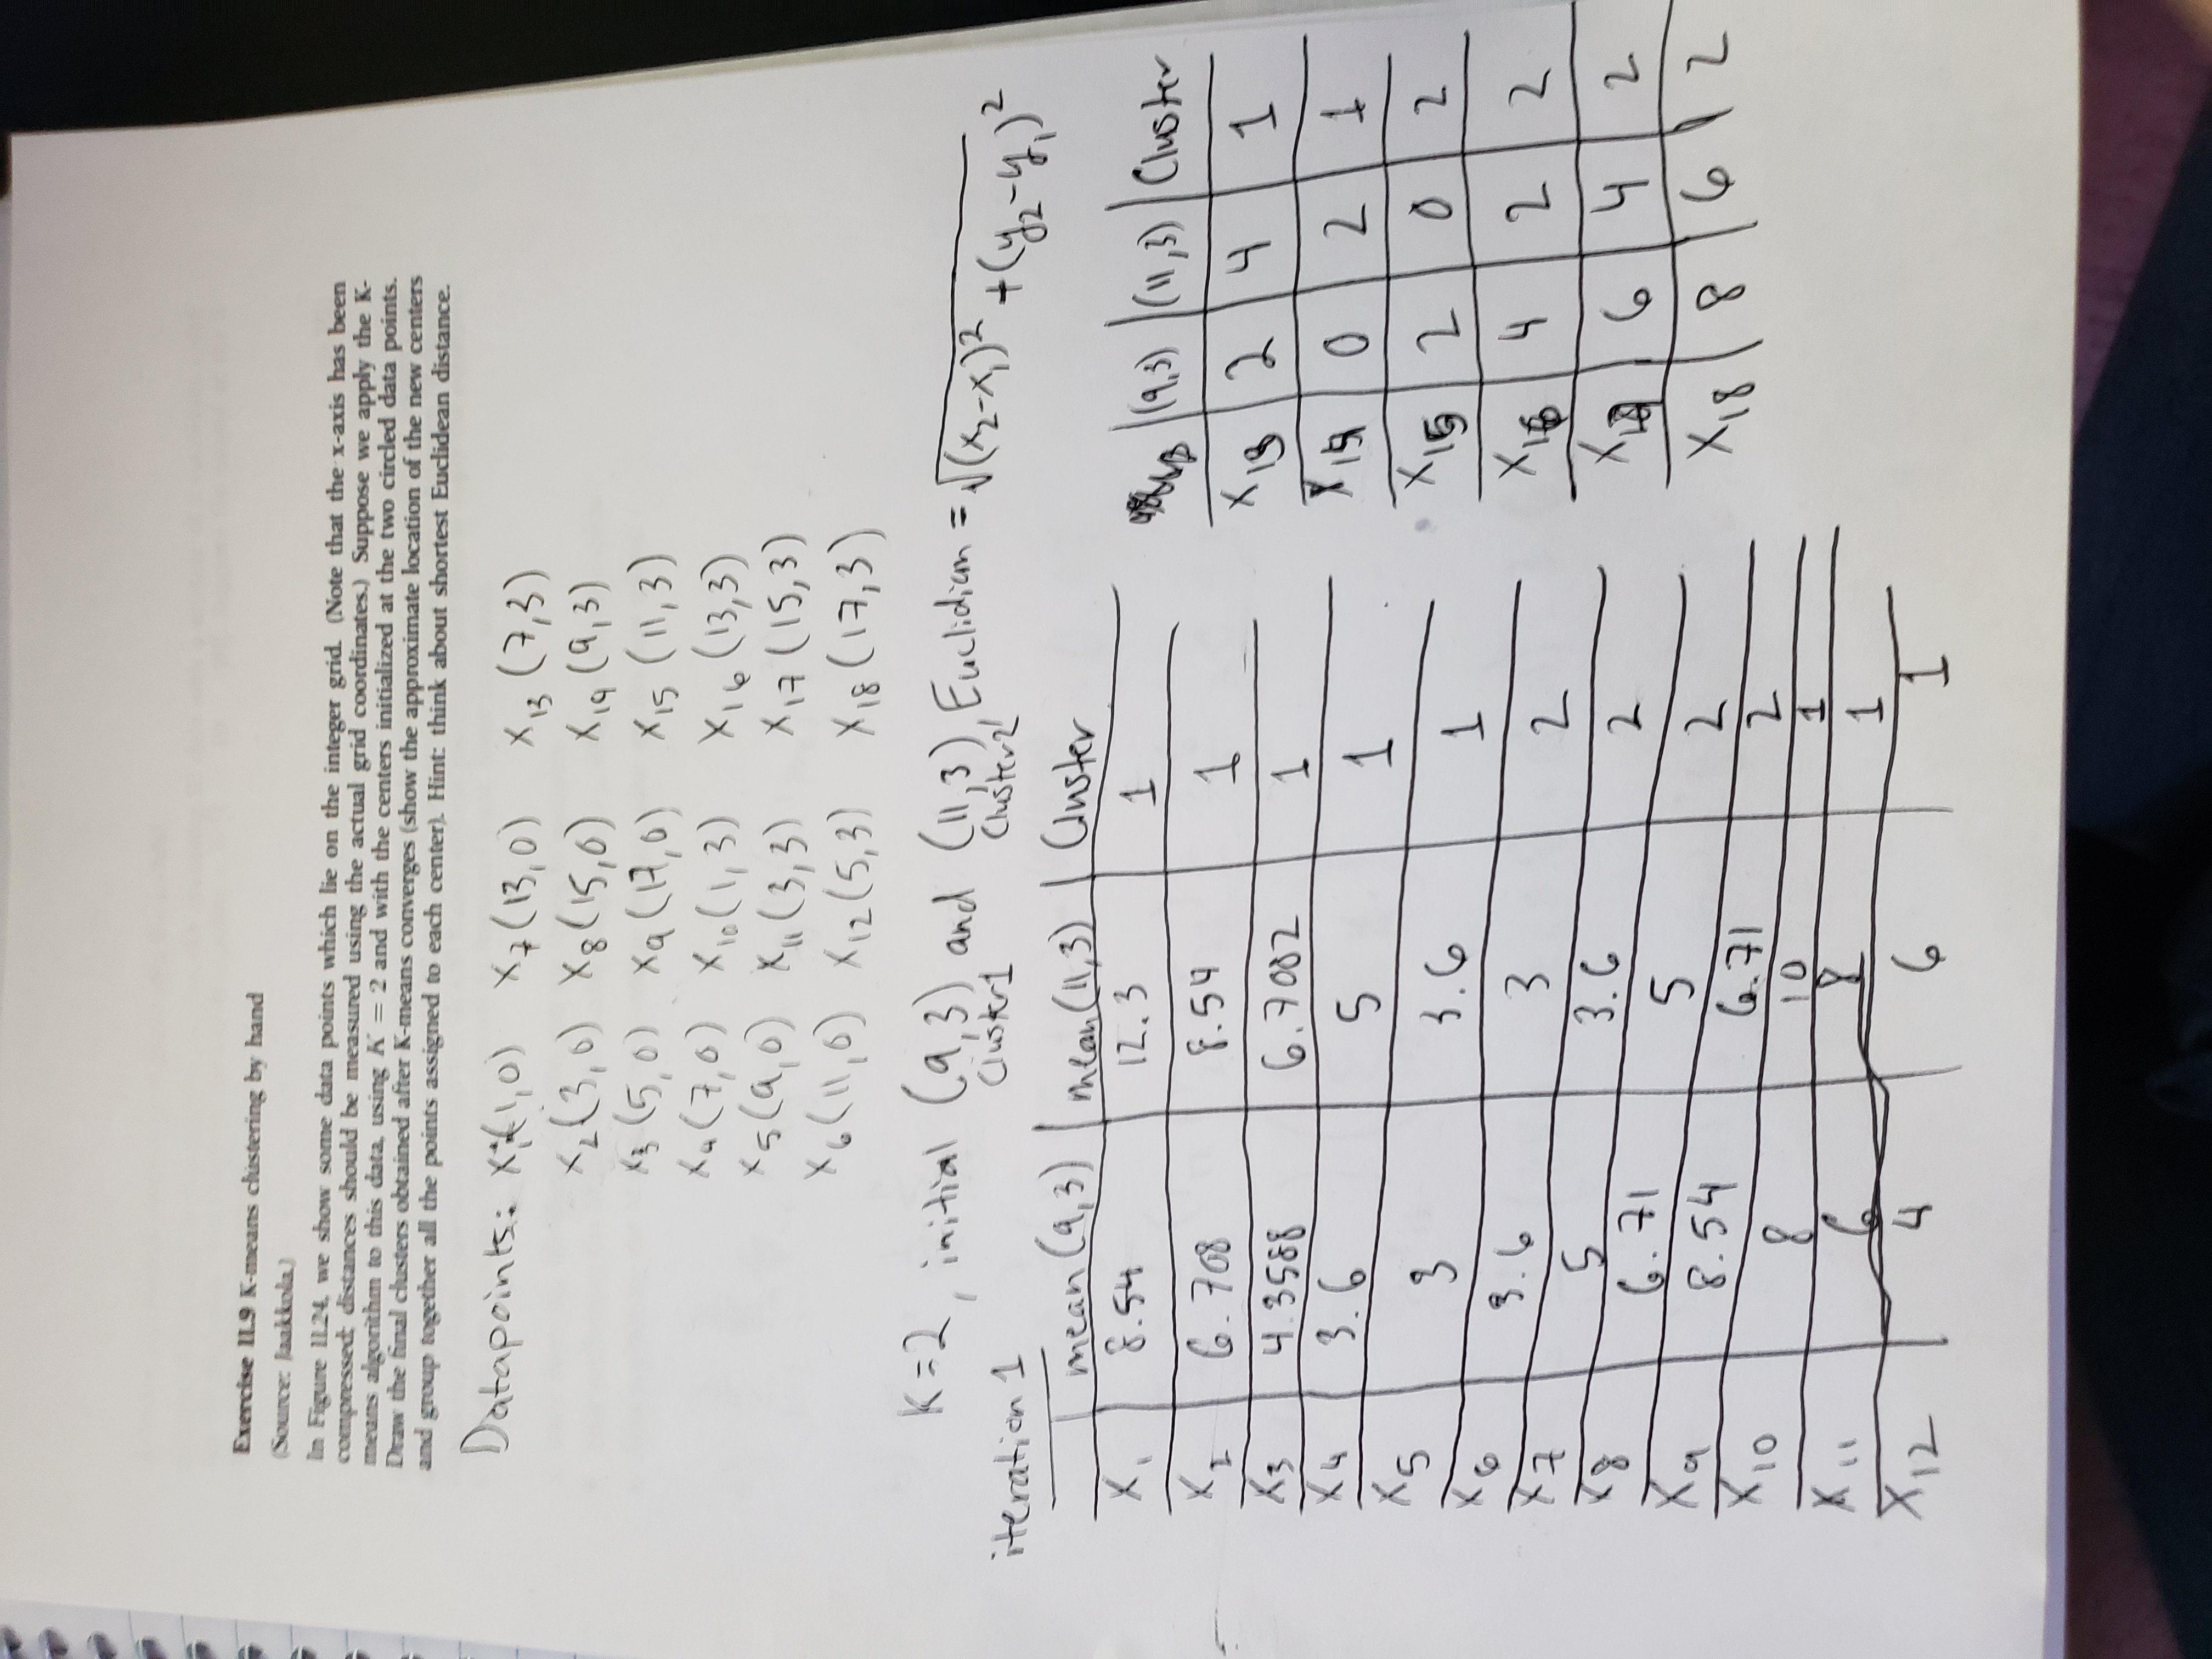 Exercise 11.9 K-means clustering by hand
(Source: Jaakkola.)
In Figure 11.24, we show some data points which lie on the integer grid. (Note that the x-axis has been
compressed; distances should be measured using the actual grid coordinates.) Suppose we apply the K-
means algorithm to this data, using K = 2 and with the centers initialized at the two circled data points.
Draw the final clusters obtained after K-means converges (show the approximate location of the new centers
and group together all the points assigned to each center). Hint: think about shortest Euclidean distance.
Datapoints: x₁(1,0) x₇(13,0) x₁₃(7,3)
x₂(3,0) x₈(15,0) x₁₄(9,3)
x₃(5,0) x₉(17,0) x₁₅(11,3)
x₄(7,0) x₁₀(1,3) x₁₆(13,3)
x₅(9,0) x₁₁(3,3) x₁₇(15,3)
x₆(11,0) x₁₂(5,3) x₁₈(17,3)
K=2, initial (9,3) and (11,3), Euclidian = √(x₂-x₁)² + (y₂-y₁)²
Cluster1 Cluster2
iteration 1
mean(9,3) mean(11,3) Cluster
x₁ 8.54 12.3 1
x₂ 6.708 8.54 1
x₃ 4.3588 6.7082 1
x₄ 3.6 5 1
x₅ 3 3.6 1
x₆ 3.6 3 2
x₇ 5 3.6 2
x₈ 6.71 5 2
x₉ 8.54 6.71 2
x₁₀ 8 10 1
x₁₁ 6 8 1
x₁₂ 4 6 1
(9,3) (11,3) Cluster
x₁₃ 2 4 1
x₁₄ 0 2 1
x₁₅ 2 0 2
x₁₆ 4 2 2
x₁₇ 6 4 2
x₁₈ 8 6 2